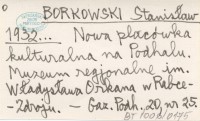 BORKOWSKI Stanisław
1932... Nowa placówka
kulturalna na Podhalu.
Muzeum regionalne im.
Władysława Orkana w Rabce-
-Zdroju. — Gaz. Podh., 20, nr 25.
BT 1008/0475